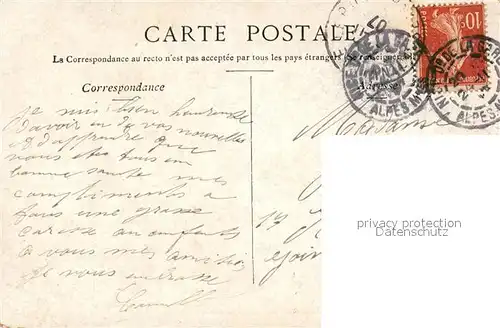 CARTE POSTALE
La Correspondance au recto n'est pas acceptée par tous les pays étrangers (Se renseigner
Correspondance
Adresse
je suis bien heureuse
d'avoir eu de vos nouvelles
et d'apprendre que
vous etes tous en
bonne sante mes
compliments a
tous une grosse
caresse au enfants
a vous mes amities
je vous embrasse
Madame
17
privacy protection
Datenschutz
10
ALPES
ALPES